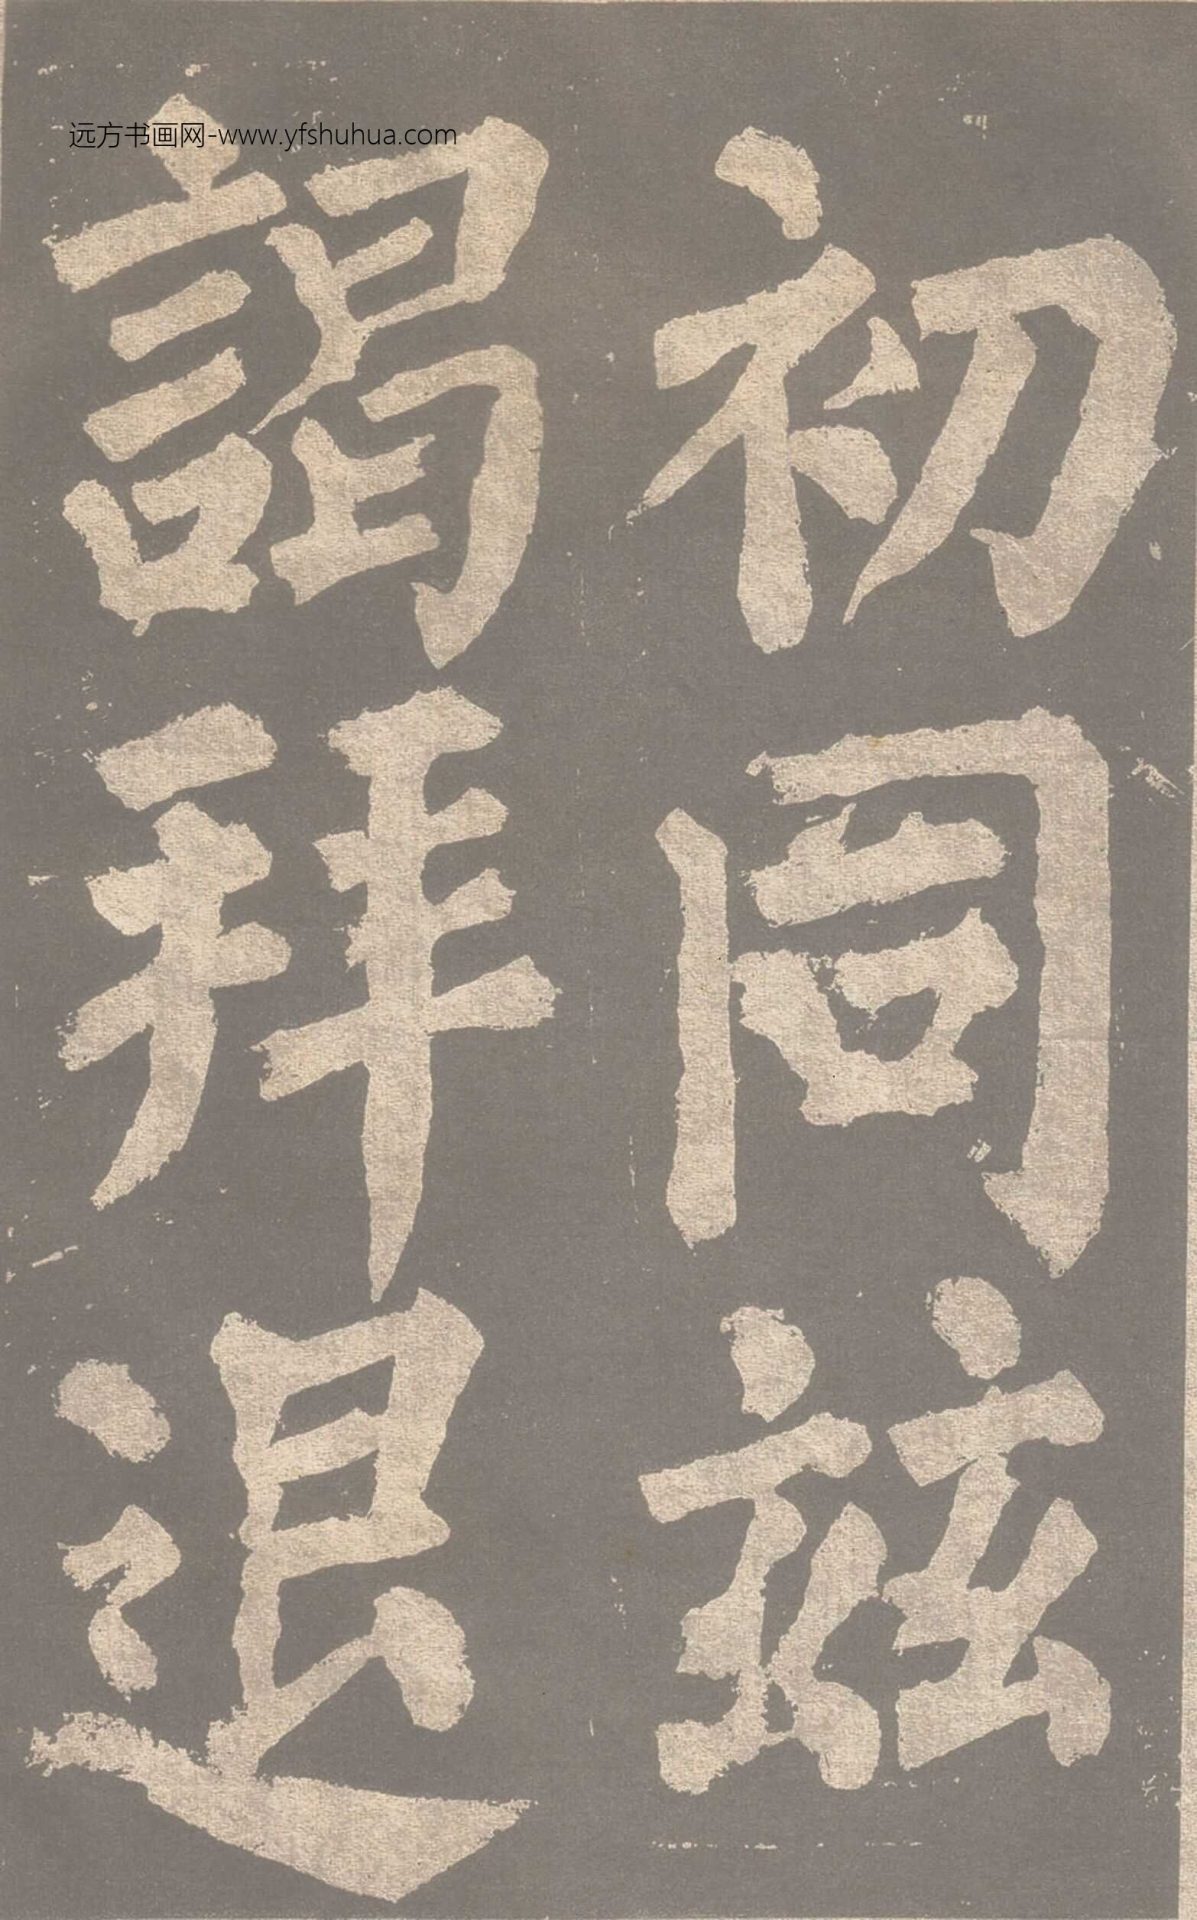 初同兹
謁拜退
远方书画网-www.yfshuhua.com